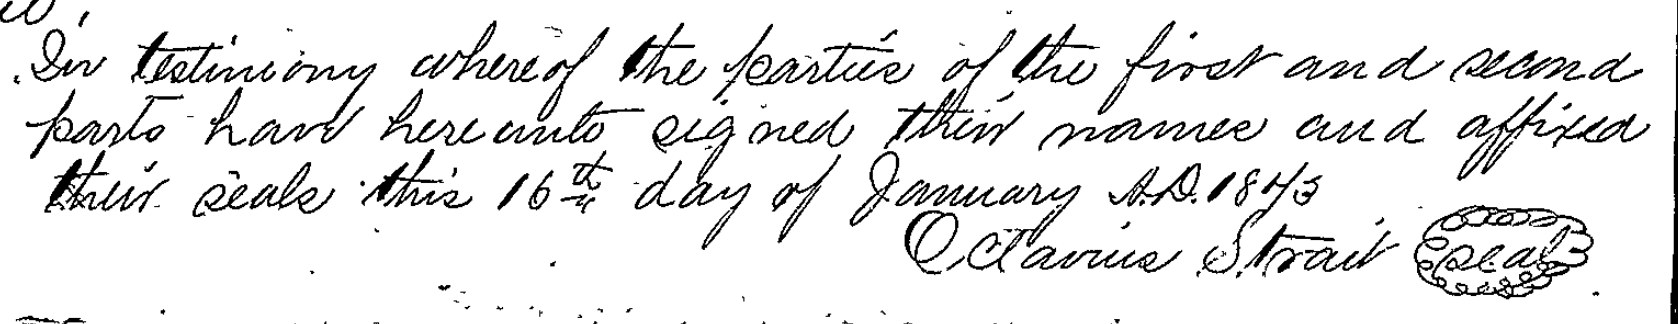 In testimony whereof the parties of the first and second
parts have hereunto signed their names and affixed
their seals this 16th day of January A.D. 1843
Octavius Strait seal